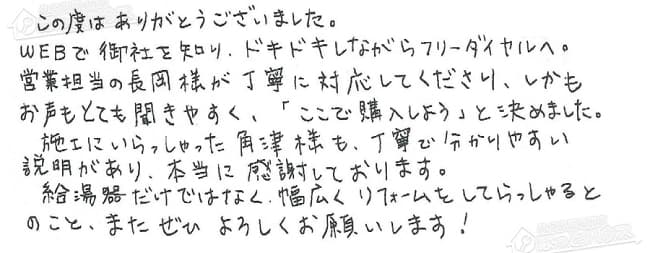 この度はありがとうございました。
WEBで御社を知り、ドキドキしながらフリーダイヤルへ。
営業担当の長岡様が丁寧に対応してくださり、しかも
お声もとても聞きやすく、「ここで購入しよう」と決めました。
施工にいらっしゃった角津様も、丁寧で分かりやすい
説明があり、本当に感謝しております。
給湯器だけではなく、幅広くリフォームをしてらっしゃると
のこと、またぜひよろしくお願いします！